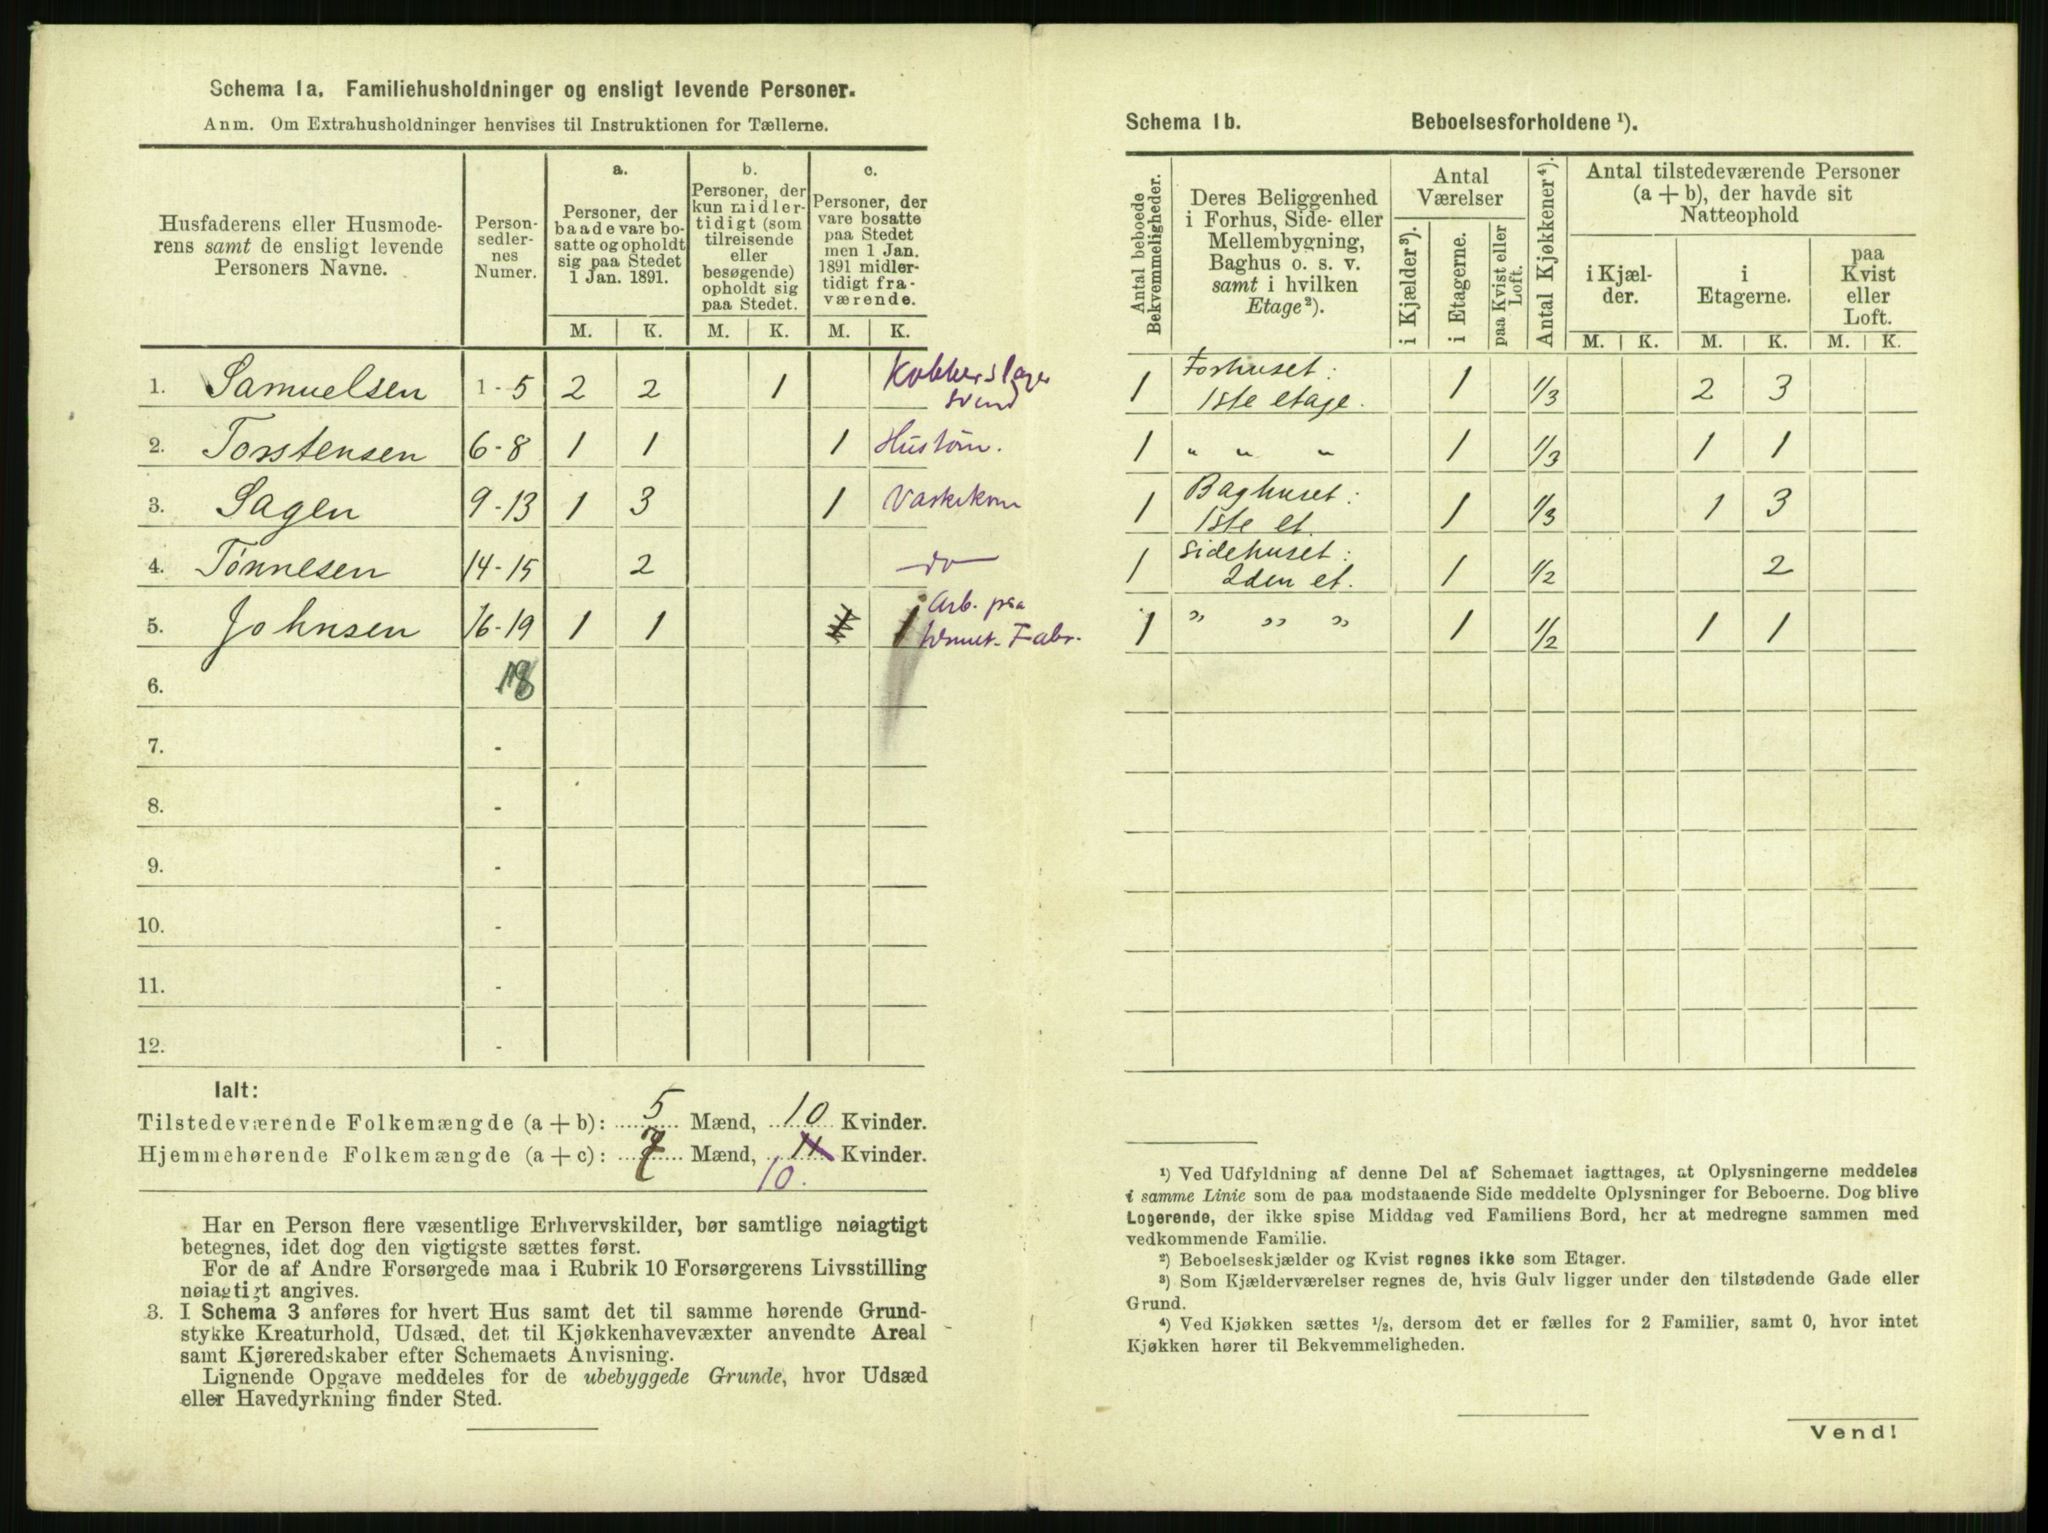 Schema 1a. Familiehusholdninger og ensligt levende Personer.
Anm. Om Extrahusholdninger henvises til Instruktionen for Tællerne.
Husfaderens eller Husmode-
rens samt de ensligt levende
Personers Navne.
Person-
sedler-
nes
Numer.
a.
Personer, der
baade vare bo-
satte og opholdt
sig paa Stedet
1 Jan. 1891.
b.
Personer, der
kun midler-
tidigt (som
tilreisende
eller
besøgende)
opholdt sig
paa Stedet.
c.
Personer, der
vare bosatte
paa Stedet
men 1 Jan.
1891 midler-
tidigt fra-
værende.
M. K. M. K. M. K.
1. Samuelsen 1-5 2 2 1 Kobberslager
svend
2. Torstensen 6-8 1 1 1 Hustøm.
3. Sagen 9-13 1 3 1 Vaskekone
4. Tønnesen 14-15 2 do
5. Johnsen 16-19 1 1 1 Arb. paa
Fabr.
6. 18
7. -
8. -
9. -
10. -
11. -
12. -
Ialt:
Tilstedeværende Folkemængde (a + b): 5 Mænd, 10 Kvinder.
Hjemmehørende Folkemængde (a + c): 7 Mænd, 11 Kvinder.
10.
Har en Person flere væsentlige Erhvervskilder, bør samtlige nøiagtigt
betegnes, idet dog den vigtigste sættes først.
For de af Andre Forsørgede maa i Rubrik 10 Forsørgerens Livsstilling
nøiagtigt angives.
3. I Schema 3 anføres for hvert Hus samt det til samme hørende Grund-
stykke Kreaturhold, Udsæd, det til Kjøkkenhavevæxter anvendte Areal
samt Kjøreredskaber efter Schemaets Anvisning.
Lignende Opgave meddeles for de ubebyggede Grunde, hvor Udsæd
eller Havedyrkning finder Sted.
Schema 1b. Beboelsesforholdene ¹).
Antal beboede
Bekvemmeligheder.
Deres Beliggenhed
i Forhus, Side- eller
Mellembygning,
Baghus o. s. v.
samt i hvilken
Etage²).
Antal
Værelser
i Kjælder³).
i Etagerne.
paa Kvist eller
Loft.
Antal Kjøkkener⁴).
Antal tilstedeværende Personer
(a + b), der havde sit
Natteophold
i Kjæl-
der.
i
Etagerne.
paa
Kvist
eller
Loft.
M. K. M. K. M. K.
1 Forhuset:
1ste etage. 1 1/3 2 3
1 " " " 1 1/3 1 1
1 Baghuset:
1ste et. 1 1/3 1 3
1 Sidehuset:
2den et. 1 1/2 2
1 " " " 1 1/2 1 1
¹) Ved Udfyldning af denne Del af Schemaet iagttages, at Oplysningerne meddeles
i samme Linie som de paa modstaaende Side meddelte Oplysninger for Beboerne. Dog blive
Logerende, der ikke spise Middag ved Familiens Bord, her at medregne sammen med
vedkommende Familie.
²) Beboelseskjælder og Kvist regnes ikke som Etager.
³) Som Kjælderværelser regnes de, hvis Gulv ligger under den tilstødende Gade eller
Grund.
⁴) Ved Kjøkken sættes ½, dersom det er fælles for 2 Familier, samt 0, hvor intet
Kjøkken hører til Bekvemmeligheden.
Vend!